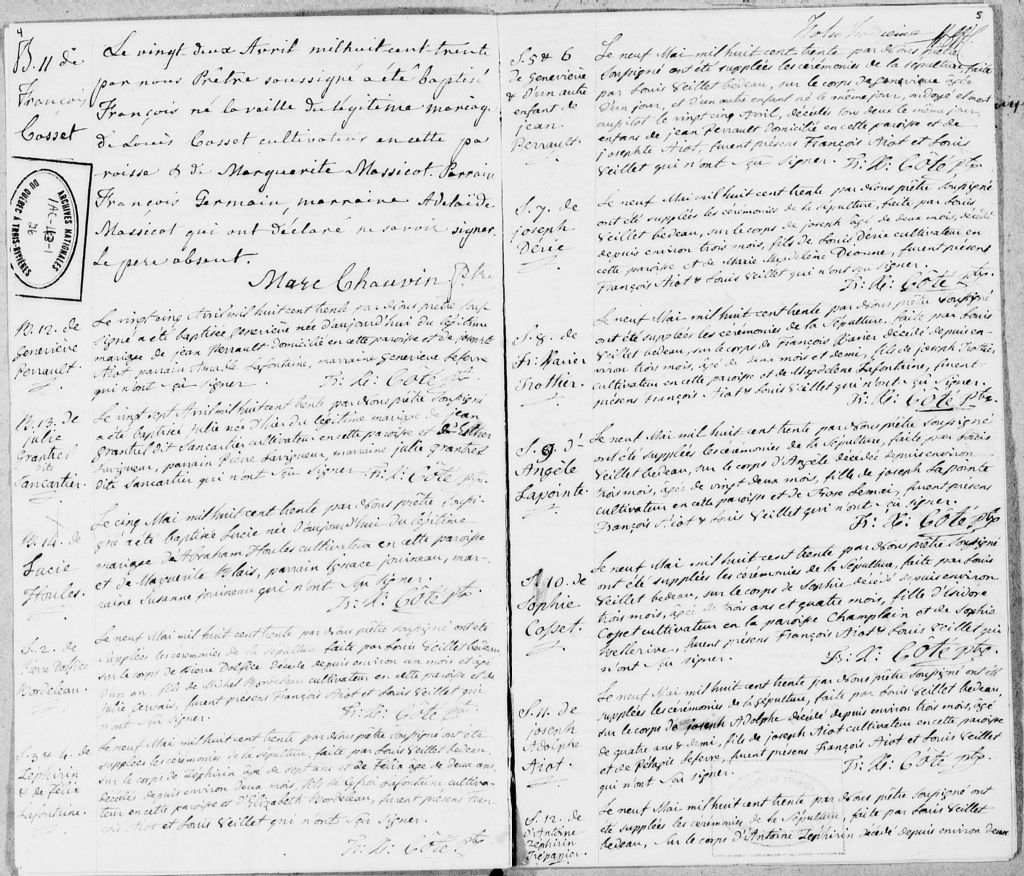 4
B. 11 de
François
Cosset
Le vingt deux Avril mil huit cent trente
par nous Prêtre soussigné a été baptisé
François né la veille du légitime mariage
de Louis Cosset cultivateur en cette pa
roisse & de Marguerite Massicot. Parrain
François Germain, marraine Adelaide
Massicot qui ont déclaré ne savoir signer
Le pere absent.
Marc Chauvin Ptre
ARCHIVES NATIONALES
DU QUÉBEC À TROIS-RIVIÈRES
26
B. 12. de
Geneviève
Perrault.
Le vingt cinq Avril mil huit cent trente par Nous prêtre sous-
signé a été baptisée Geneviève née d'aujourd'hui du légitime
mariage de jean Perrault Domicilié en cette paroisse et de josephte
Aiot, parrain Amable Lafontaine, marraine Genevieve Lefevre
qui n'ont sçu signer. Fr: X: Côté ptr.
B. 13. de
julie
Grantel
dit
Lancartier.
Le vingt sept Avril mil huit cent trente par Nous prêtre soussigné
a été baptisée julie née d'hier du légitime mariage de jean
Grantel dit Lancartier cultivateur en cette paroisse et d'Esther
Lavigueur, parrain Pierre Lavigueur, marraine julie Grantel
dite Lancartier qui n'ont sçu signer. Fr: X: Côté ptr.
B. 14. de
Lucie
Houles.
Le cinq Mai mil huit cent trente par Nous prêtre soussi-
gné a été baptisée Lucie née d'aujourd'hui du légitime
mariage d'Abraham Houles cultivateur en cette paroisse
et de Marguerite Blais, parrain Ignace jouineau, mar-
raine Susanne jouineau qui n'ont sçu signer.
Fr: X: Côté ptr.
S. 2. de
Pierre Dolphice
Bordeleau.
Le neuf Mai mil huit cent trente par Nous prêtre soussigné ont été
supplées les cérémonies de la sépulture faite par Louis Veillet bedeau
sur le corps de Pierre Dolphice décédé depuis environ un mois et agé
d'un an, fils de Michel Bordeleau cultivateur en cette paroisse et de
julie Gervais, furent présens François Aiot et Louis Veillet qui
n'ont sçu signer. Fr: X: Côté ptr.
S. 3 & 4. de
Zéphirin
& de Félix
Lafontaine.
Le neuf Mai mil huit cent trente par Nous prêtre soussigné ont été
supplées les cérémonies de la sépulture, faite par Louis Veillet bedeau,
sur le corps de Zéphirin âgé de sept ans et de Félix âgé de deux ans
décédés depuis environ deux mois, fils de Lafontaine cultiva-
teur en cette paroisse et d'Elizabeth Bordeleau, furent présens Fran-
çois Aiot et Louis Veillet qui n'ont sçu signer.
Fr: X: Côté ptr.
5
S. 5 & 6
de Geneviève
& d'un autre
enfant de
jean
Perrault.
Le neuf Mai mil huit cent trente par Nous prêtre
soussigné ont été supplées les cérémonies de la sépulture, faite
par Louis Veillet bedeau, sur le corps de Geneviève âgée
d'un jour, et d'un autre enfant né le même jour, ondoyé et mort
aussitôt le vingt cinq Avril, décédés tous deux le même jour,
enfans de jean Perrault Domicilié en cette paroisse et de
josephte Aiot, furent présens François Aiot et Louis
Veillet qui n'ont sçu signer. Fr: X: Côté ptr.
S. 7. de
joseph
Dérie
Le neuf Mai mil huit cent trente par Nous prêtre soussigné
ont été supplées les cérémonies de la sépulture, faite par Louis
Veillet bedeau, sur le corps de joseph âgé de deux mois, décédé
depuis environ trois mois, fils de Louis Dérie cultivateur en
cette paroisse et de Marie Magdelène furent présens
François Aiot & Louis Veillet qui n'ont sçu signer.
Fr: X: Côté ptr.
S. 8. de
Fr: Xavier
Trottier.
Le neuf Mai mil huit cent trente par Nous prêtre soussigné
ont été supplées les cérémonies de la Sépulture, faite par Louis
Veillet bedeau, sur le corps de François Xavier décédé depuis en-
viron trois mois, âgé de deux mois et demi, fils de joseph Trottier,
cultivateur en cette paroisse et de Magdelène Lafontaine, furent
présens François Aiot & Louis Veillet qui n'ont sçu signer.
Fr: X: Côté ptr.
S. 9. d'
Angèle
Lapointe.
Le neuf Mai mil huit cent trente par Nous prêtre soussigné
ont été supplées les cérémonies de la Sépulture, faite par Louis
Veillet bedeau, sur le corps d'Angèle décédée depuis environ
trois mois, âgée de vingt deux mois, fille de joseph Lapointe
cultivateur en cette paroisse et de Rose Lemai, furent présens
François Aiot & Louis Veillet qui n'ont sçu signer.
Fr: X: Côté ptr.
S. 10. de
Sophie
Cosset.
Le neuf Mai mil huit cent trente par Nous prêtre soussigné
ont été supplées les cérémonies de la Sépulture, faite par Louis
Veillet bedeau, sur le corps de Sophie décédée depuis environ
trois mois, âgée de trois ans et quatre mois, fille d'Isidore
Cosset cultivateur en la paroisse Champlain et de Sophie
furent présens François Aiot & Louis Veillet qui
n'ont sçu signer. Fr: X: Côté ptr.
S. 11. de
joseph
Adolphe
Aiot.
Le neuf Mai mil huit cent trente par Nous prêtre soussigné ont été
supplées les cérémonies de la Sépulture, faite par Louis Veillet bedeau,
sur le corps de joseph Adolphe décédé depuis environ trois mois, âgé
de quatre ans & demi, fils de joseph Aiot cultivateur en cette paroisse
et de Pélagie Lefevre, furent présens François Aiot et Louis Veillet
qui n'ont sçu signer. Fr: X: Côté ptr.
S. 12. de
d'Antoine
Zéphirin
Trépanier.
Le neuf Mai mil huit cent trente par Nous prêtre soussigné ont
été supplées les cérémonies de la Sépulture, faite par Louis Veillet
bedeau, sur le corps d'Antoine Zéphirin décédé depuis environ deux